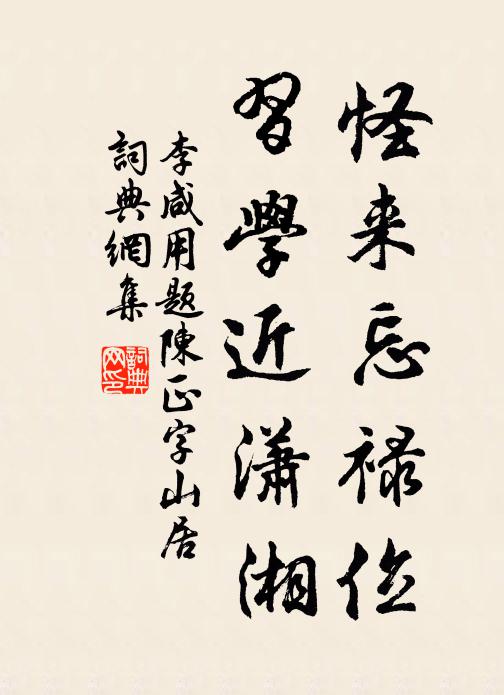 怪来忘禄位
習學近瀟湘
李咸用題陳正字山居
詞典網集
詞典網印